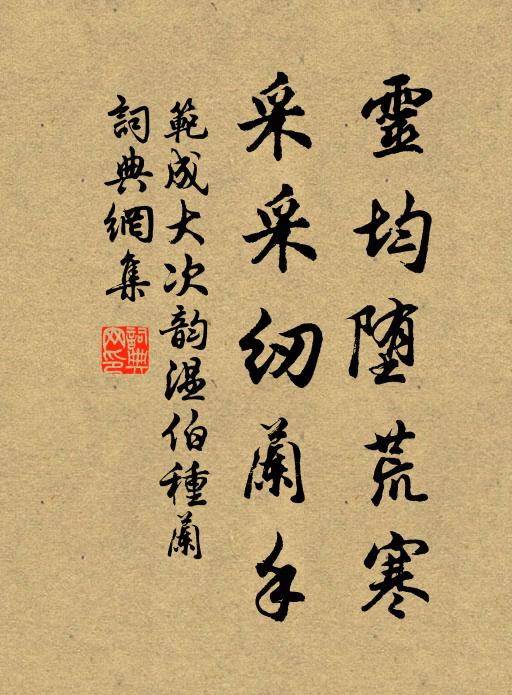 靈均堕荒寒
采采纫蘭手
範成大次韵温伯種蘭
詞典網集
詞典网印